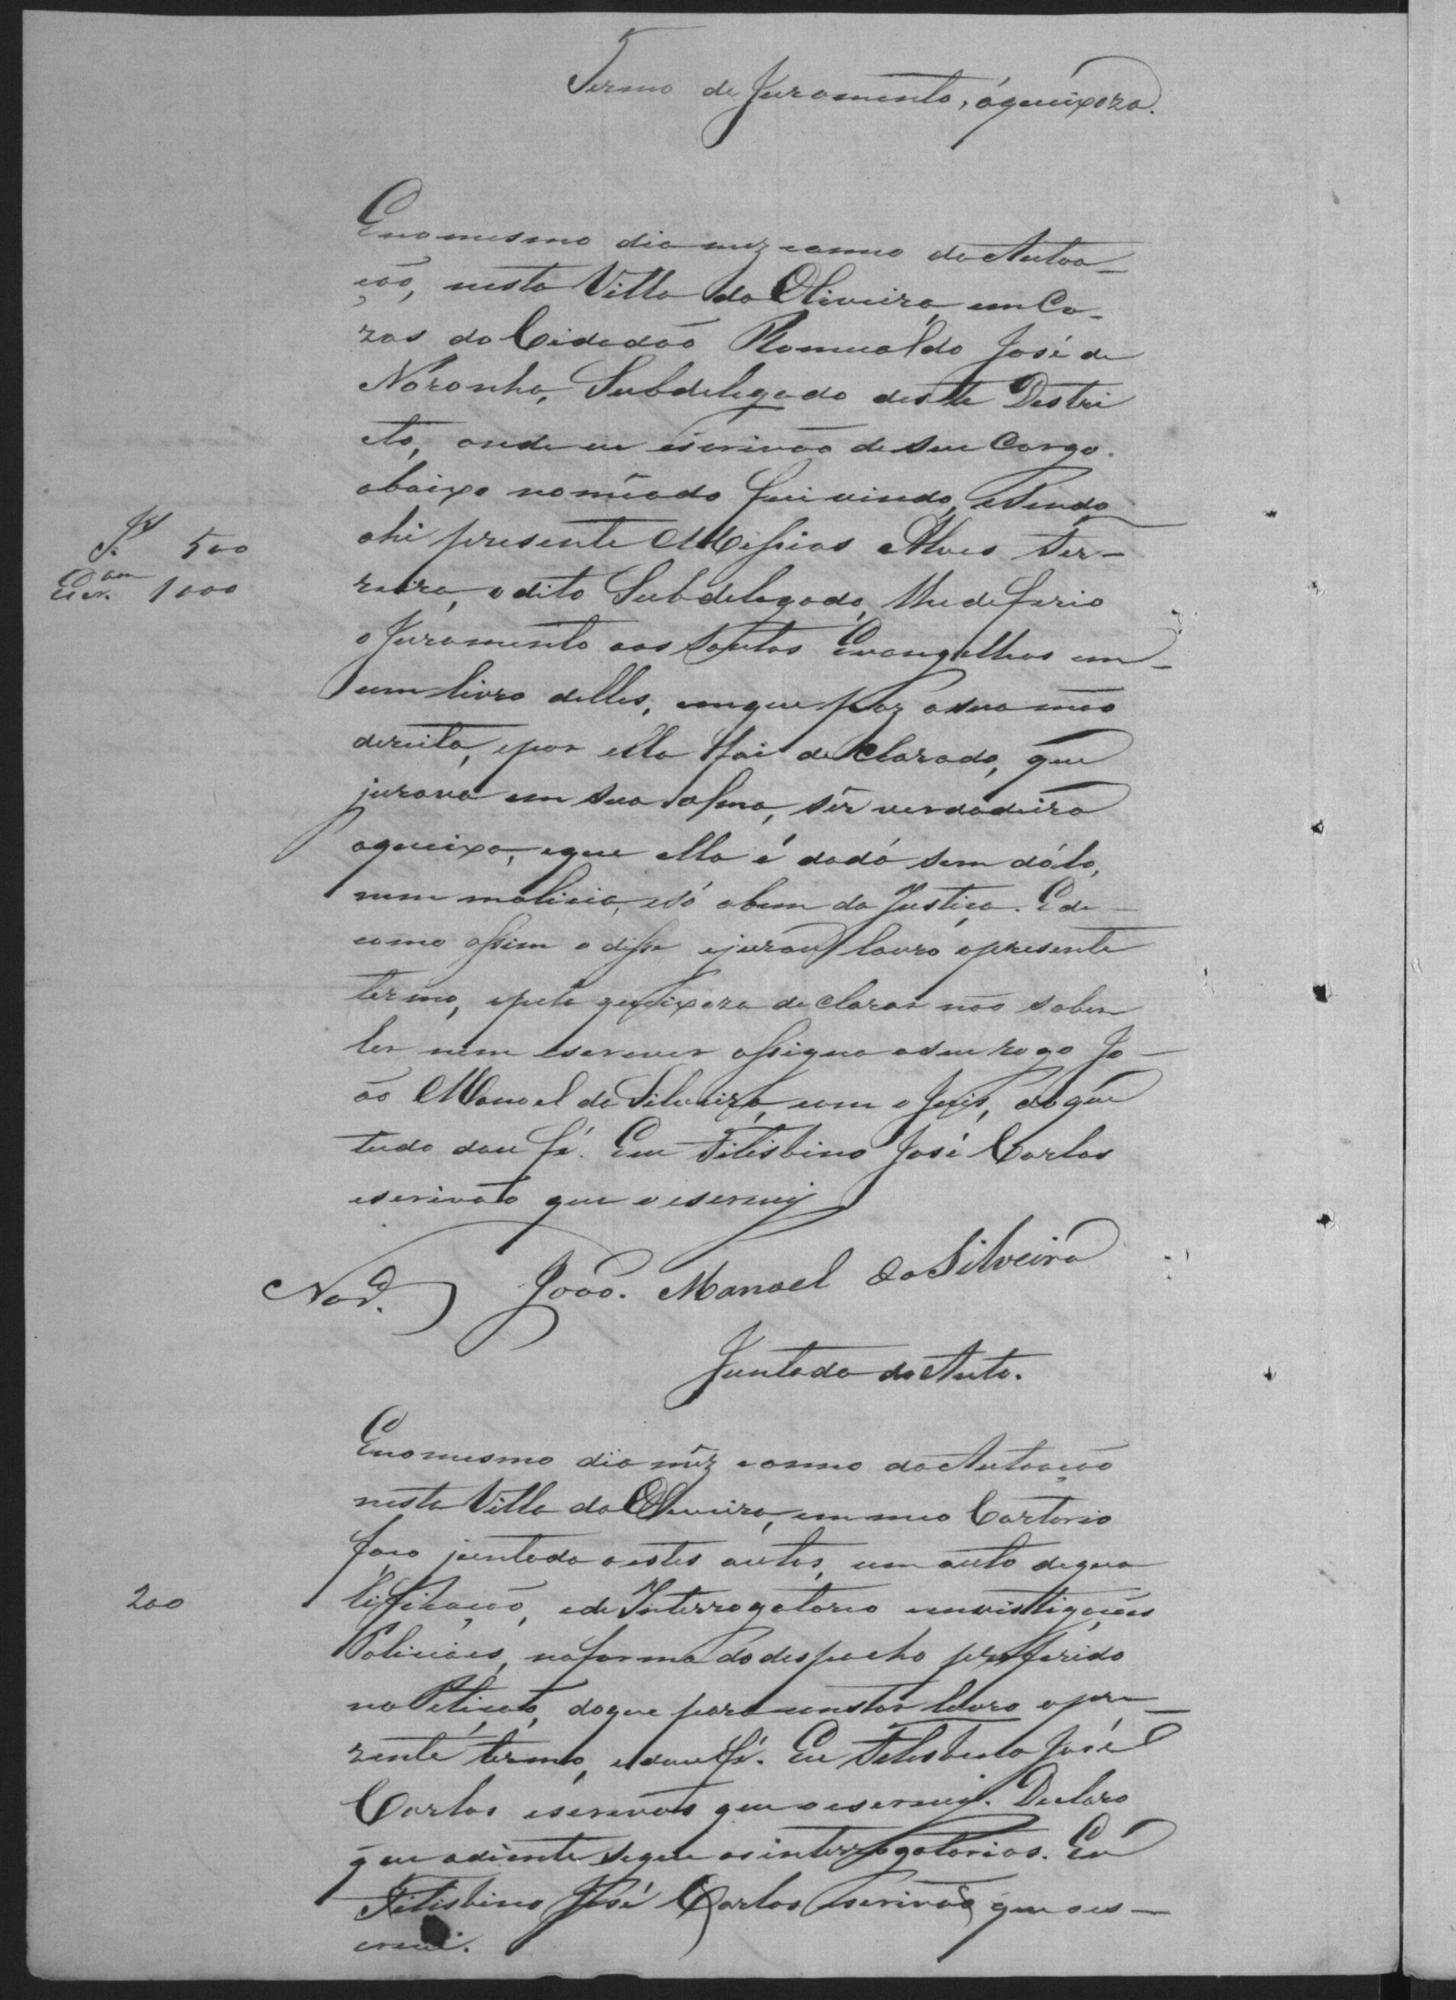 Termo de Juramento, á queixoza.
E no mesmo dia mez e anno da Autoa-
ção, nesta Villa da Oliveira, em Ca-
zas do Cidadão Romualdo José de
Noronha, Subdelegado deste Destri
cto, onde eu escrivão de seu Cargo.
abaixo nomiado fui vindo, e sendo
ahi presente Messias Alves Fer-
reira, o dito Subdelegado, lhe deferio
J. 500
o Juramento aos Santos Evangelhos em
Escr.am 1000
um livro delles, em que poz a sua mão
direita, e por ella foi declarado, que
jurava em sua alma, sêr verdadeira
a queixa, e que ella é dada sem dólo,
nem malicia, e só a bem da Justiça. E de
como assim o disse e jurou lavro o presente
termo, e pela queixoza declarar não saber
ler nem escrever assigna a seu rogo Jo-
ão Manoel da Silveira, com o Juis, do que
tudo dou fé. Eu Filisbino José Carlos
escrivão que o escrevy
Nor.ª João. Manoel da Silveira
Juntada do Auto.
E no mesmo dia mêz e anno da Autoação
nesta Villa da Oliveira, em meo Cartorio
faço juntada a estes autos, um auto de qua
200
lificação, e de Interrogatorio envistigações
Policiaes, na forma do despacho proferido
na Petição, do que para constar lavro o pre-
zente termo, e dou fé. Eu Filisbino José
Carlos escrivão que o escrevy. Declaro
que adiante segue os interrogatorios. Eu
Filisbino José Carlos escrivão que o es-
crevi.